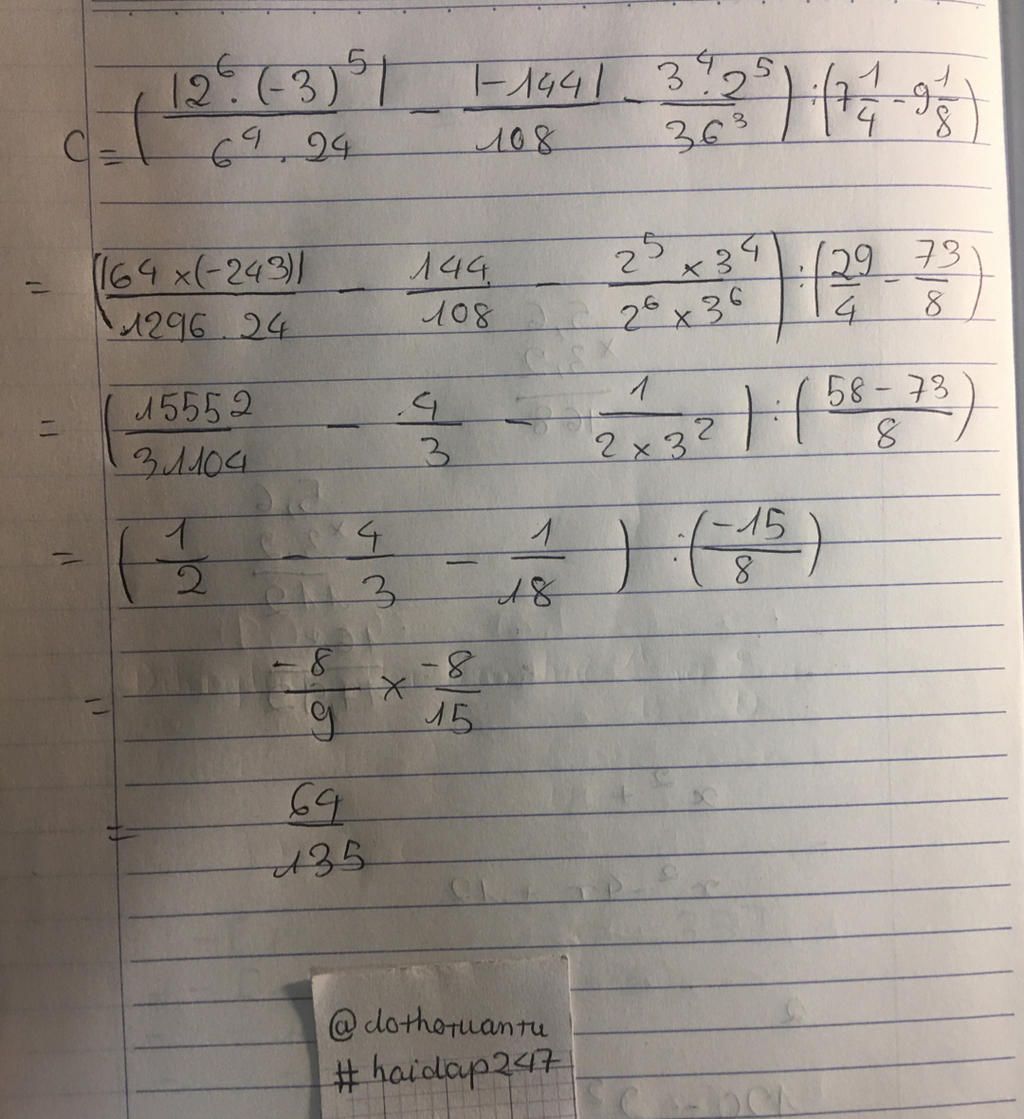 C = ( |2^6 . (-3)^5| / 6^4 . 24 - |-144| / 108 - 3^4 . 2^5 / 36^3 ) : ( 7 1/4 - 9 1/8 )
= ( |64 x (-243)| / 1296 . 24 - 144 / 108 - 2^5 x 3^4 / 2^6 x 3^6 ) : ( 29/4 - 73/8 )
= ( 15552 / 31104 - 4/3 - 1 / 2 x 3^2 ) : ( 58 - 73 / 8 )
= ( 1/2 - 4/3 - 1/18 ) : ( -15/8 )
= -8/9 x -8/15
= 64/135
@dothotuantu
# haidap247